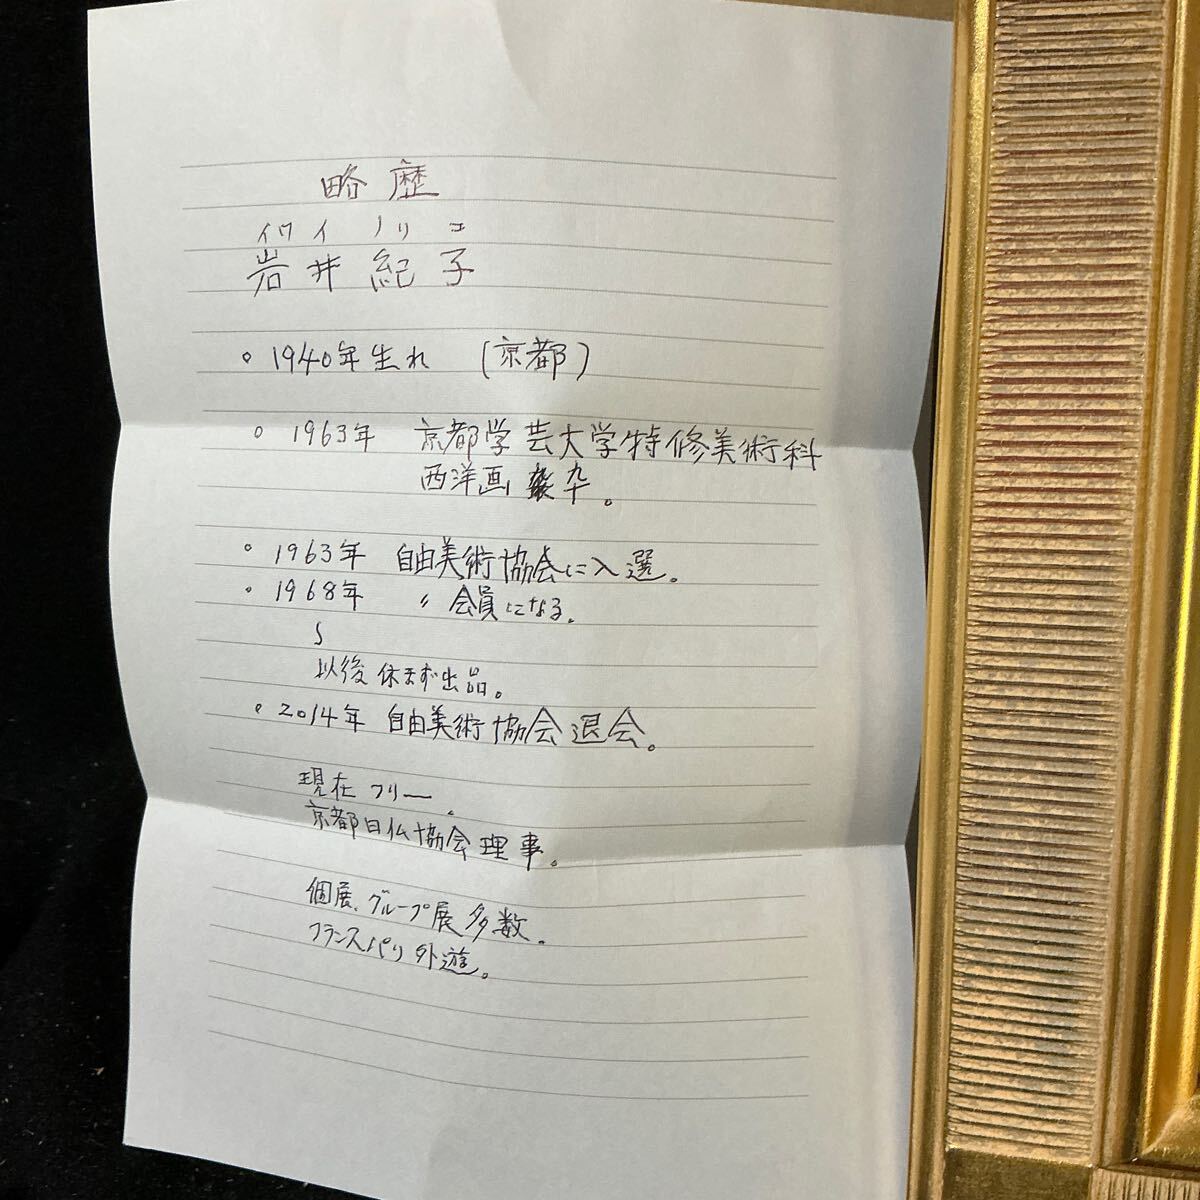 略歴
イワイ ノリコ
岩井 紀子
。1940年生れ (京都)
。1963年 京都学芸大学特修美術科
西洋画 卆。
。1963年 自由美術協会に入選。
。1968年 〃 会員になる。
〜
以後休まず出品。
。2014年 自由美術協会退会。
現在フリー。
京都日仏協会理事。
個展、グループ展多数。
フランスパリ外遊。